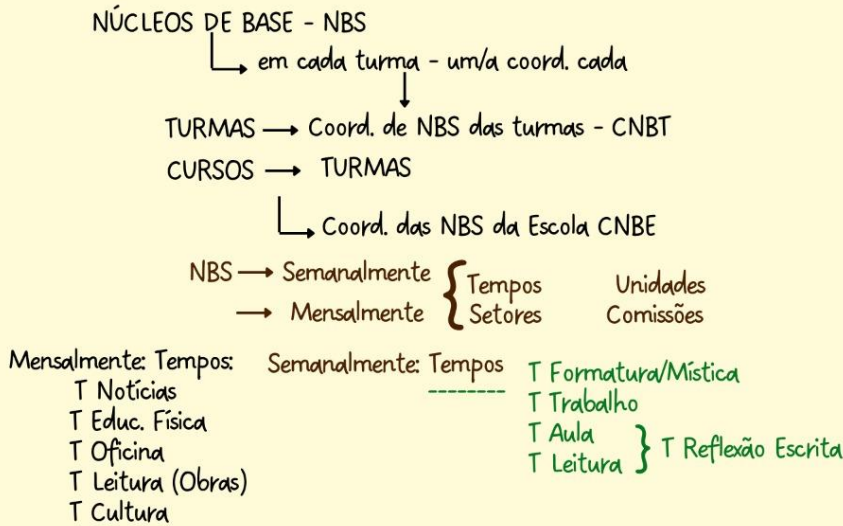 NÚCLEOS DE BASE - NBS
em cada turma - um/a coord. cada
TURMAS → Coord. de NBS das turmas - CNBT
CURSOS → TURMAS
Coord. das NBS da Escola CNBE
NBS → Semanalmente { Tempos Unidades
→ Mensalmente { Setores Comissões
Mensalmente: Tempos:
T Notícias
T Educ. Física
T Oficina
T Leitura (Obras)
T Cultura
Semanalmente: Tempos
T Formatura/Mística
T Trabalho
T Aula
T Leitura
} T Reflexão Escrita